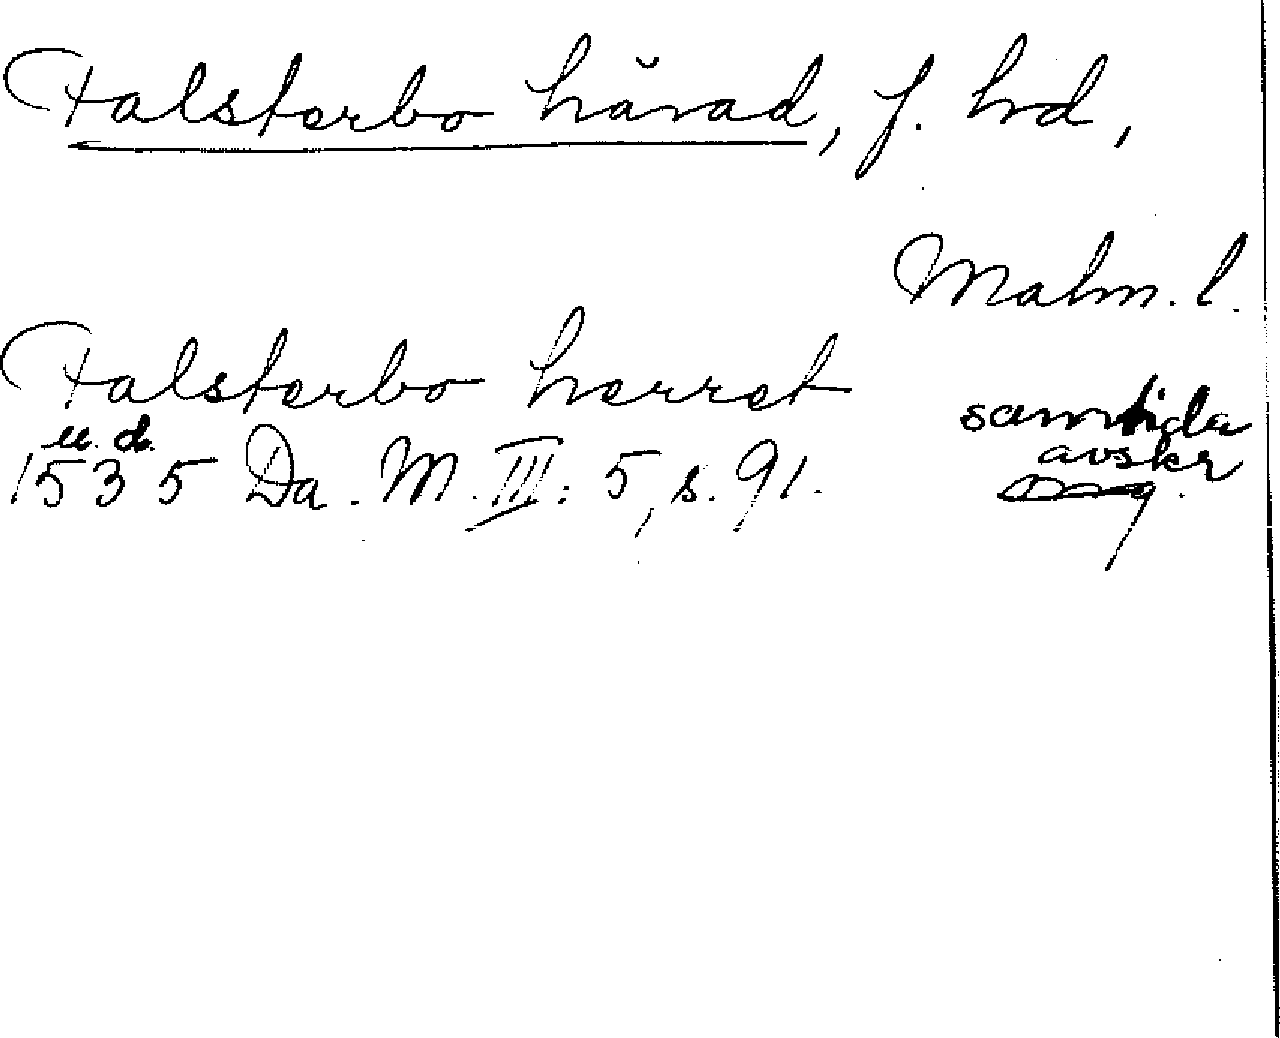 Falsterbo härad, f. hd,
Malm. l.
Falsterbo herret
samtida
u. d.
avskr
1535 Da. M. III: 5, s. 91.